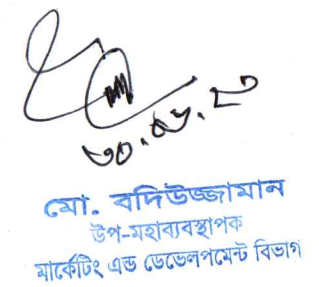 মো. বদিউজ্জামান
উপ-মহাব্যবস্থাপক
মার্কেটিং এন্ড ডেভেলপমেন্ট বিভাগ